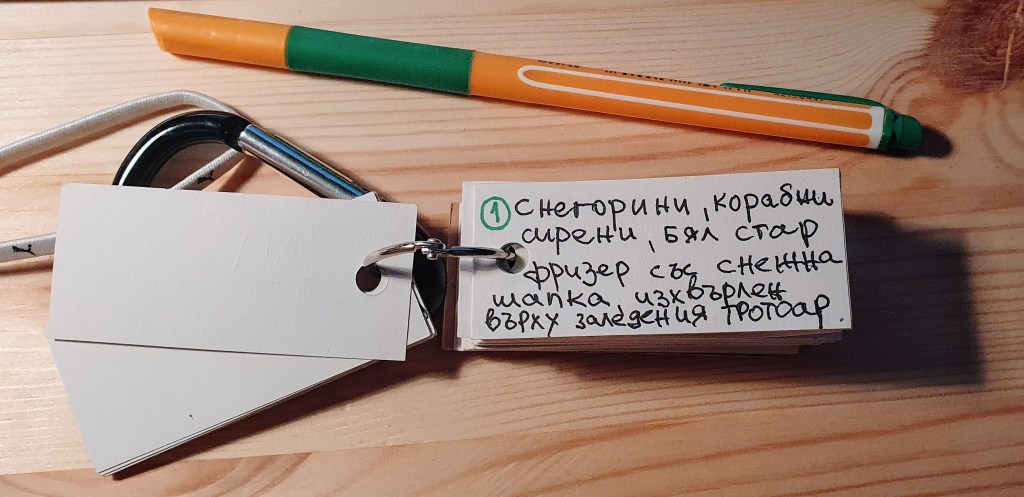 ① Снегорини, корабни
сирени, бял стар
фризер със снежна
шапка, изхвърлен
върху заледения тротоар.